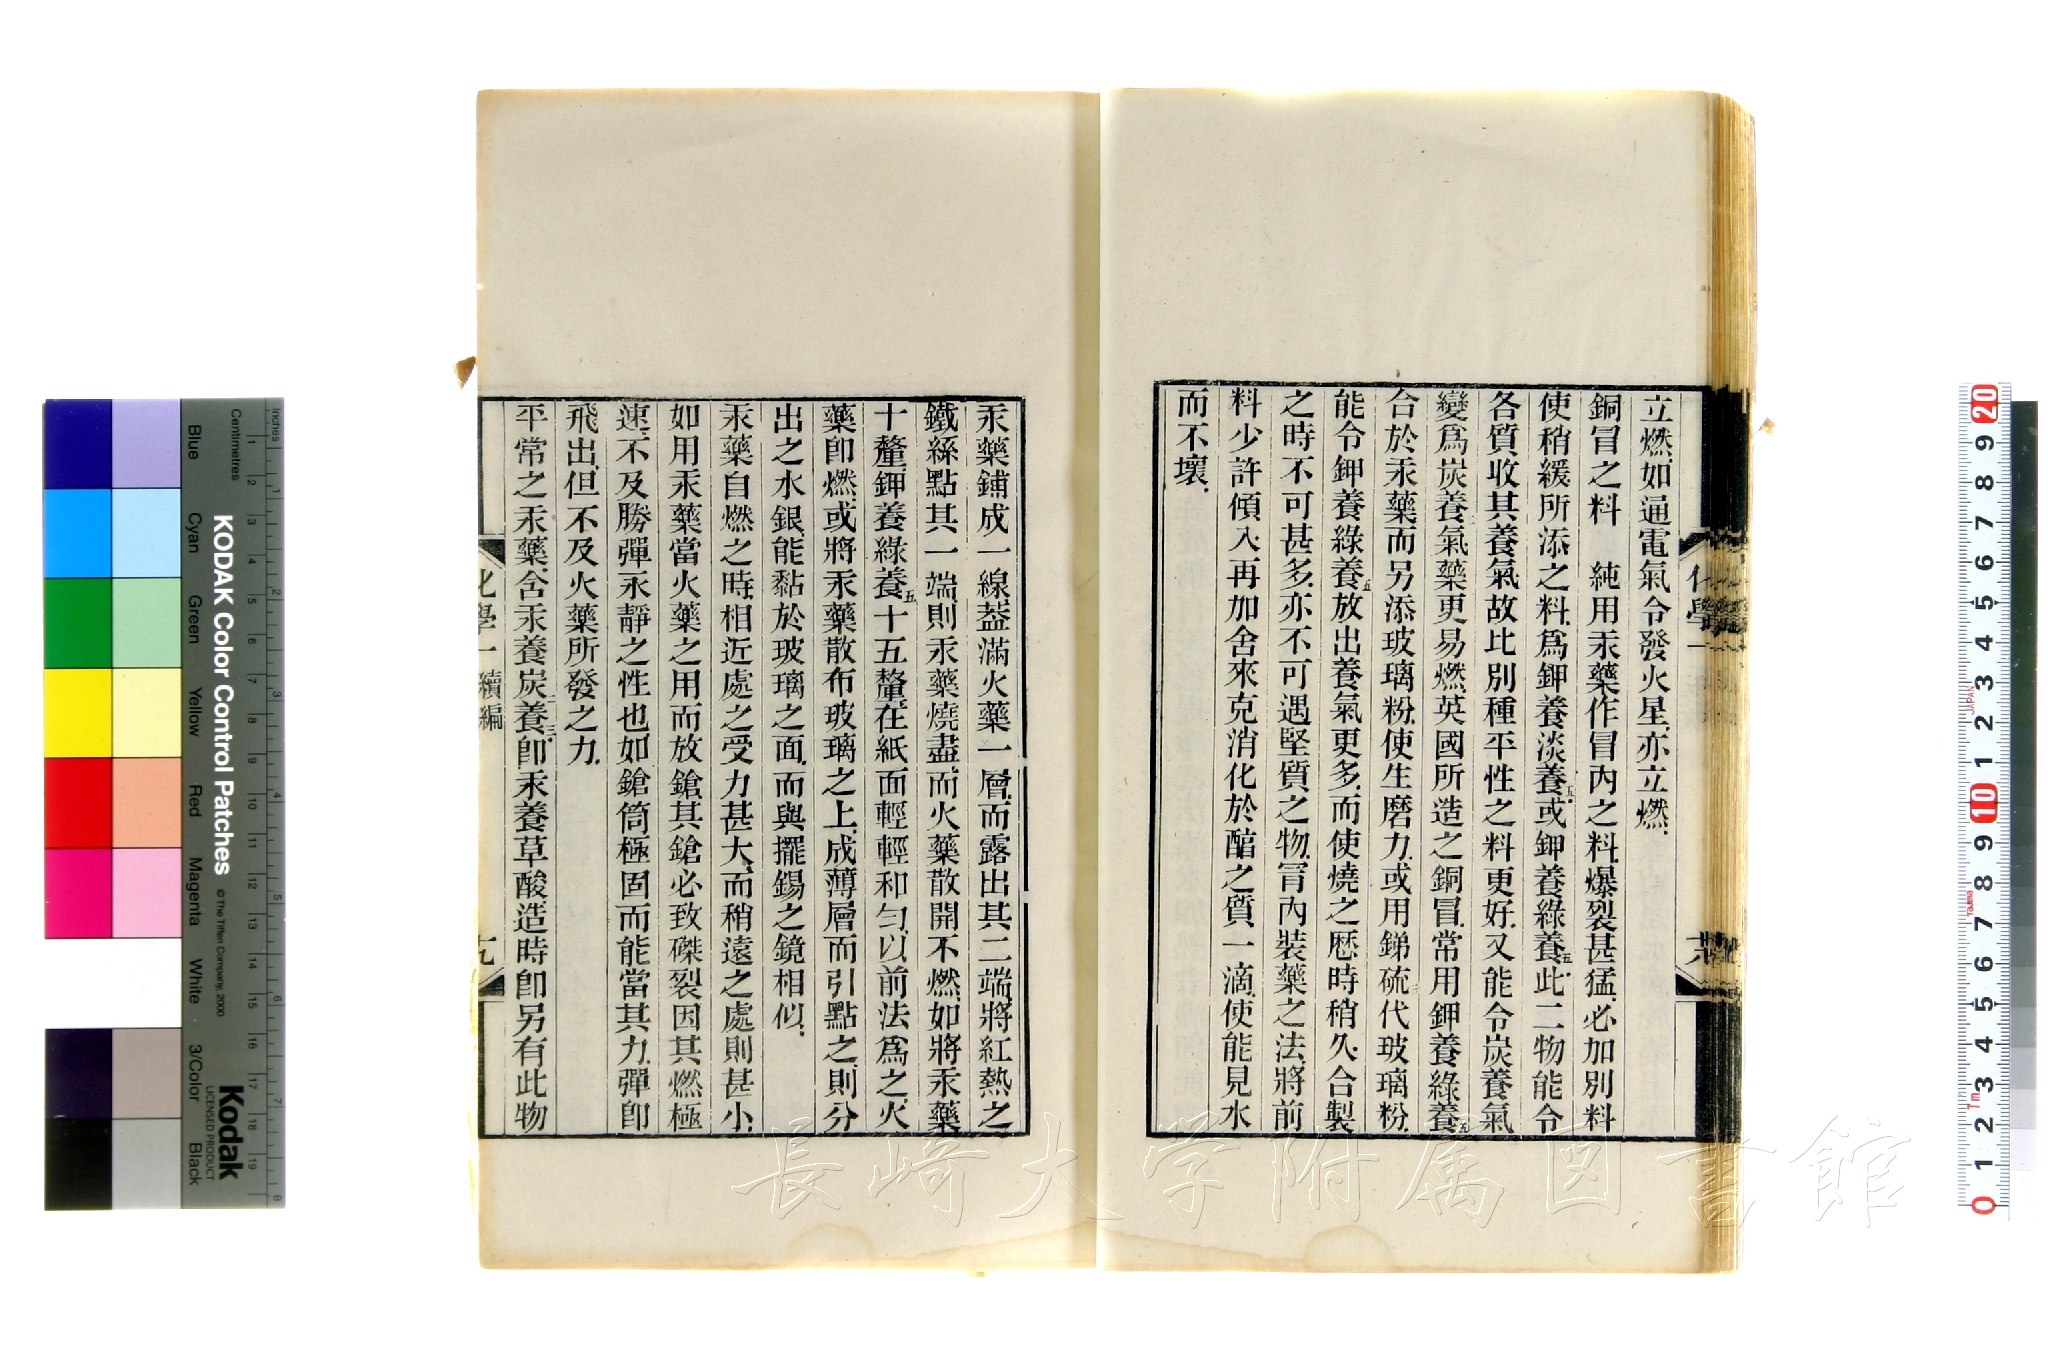 立燃如逼電氣令發火星亦立燃
銅冒之料　純用汞藥作冒內之料爆裂甚猛必加別料
使稍緩所添之料爲鉀養淡養五或鉀養綠養五此二物能令
各質收其養氣故比別種平性之料更好又能令炭養氣
變爲炭養二氣藥更易燃英國所造之銅冒常用鉀養綠養五
合於汞藥而另添玻璃粉使生磨力或用銻硫三代玻璃粉
能令鉀養綠養五放出養氣更多而使燒之歷時稍久合製
之時不可甚多亦不可遇堅質之物冒內裝藥之法將前
料少許傾入再加舍來克消化於醕之質一滴使能見水
而不壞
汞藥鋪成一線葢滿火藥一層而露出其二端將紅熱之
鐵絲點其一端則汞藥燒盡而火藥散開不燃如將汞藥
十釐鉀養綠養五十五釐在紙面輕輕和勻以前法爲之火
藥卽燃或將汞藥散布玻璃之上成薄層而引點之則分
出之水銀能黏於玻璃之面而與擺錫之鏡相似
汞藥自燃之時相近處之受力甚大而稍遠之處則甚小
如用汞藥當火藥之用而放鎗其鎗必致磔裂因其燃極
速不及勝彈汞靜之性也如鎗筒極固而能當其力彈卽
飛出但不及火藥所發之力
平常之汞藥含汞養炭二養三卽汞養草酸造時卽另有此物
化學一
續編
七
KODAK Color Control Patches
© The Tiffen Company, 2000
Kodak
LICENSED PRODUCT
Inches
Centimetres
Blue
Cyan
Green
Yellow
Red
Magenta
White
3/Color
Black
長崎大学附属図書館